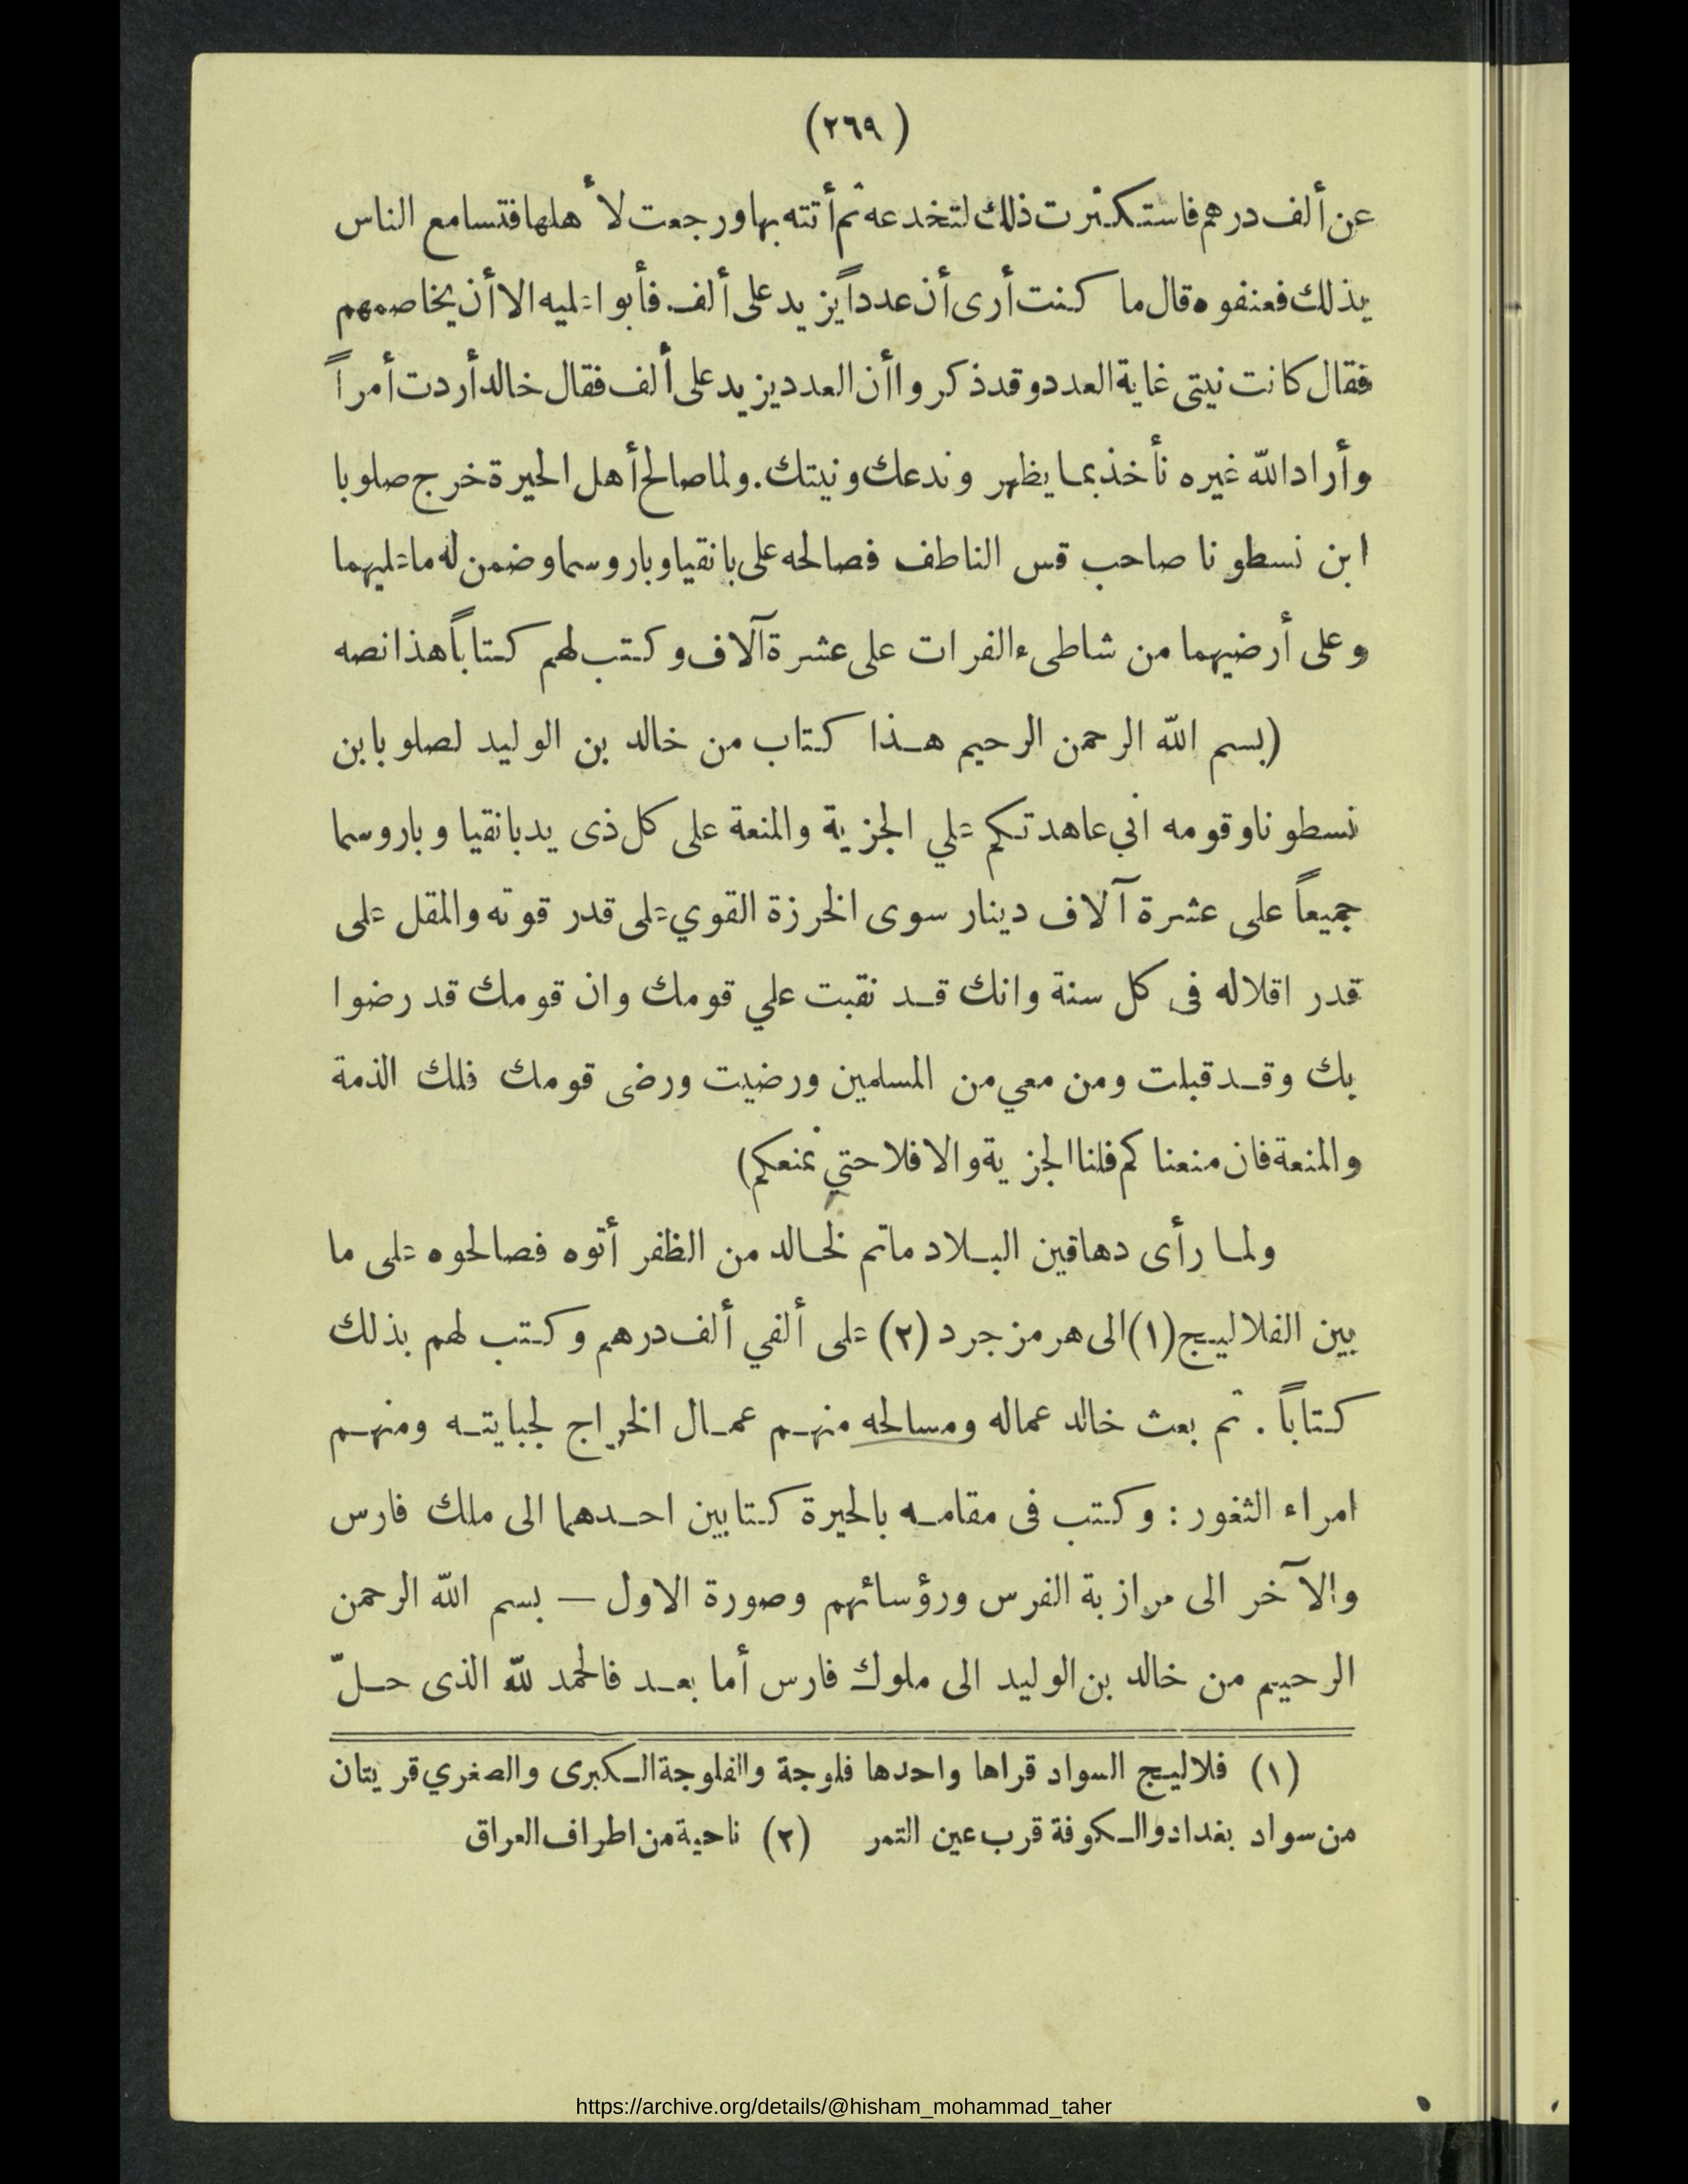 (٢٦٩)
عن ألف درهم فاستكثرت ذلك لتخدعه ثم أتته بها ورجعت لأهلها فتسامع الناس
بذلك فعنفوه قال ما كنت أرى أن عدداً يزيد على ألف. فأبوا عليه الا أن يخاصمهم
فقال كانت نيتى غاية العدد وقد ذكروا أن العدد يزيد على ألف فقال خالد أردت أمراً
وأراد الله غيره نأخذ بما يظهر وندعك ونيتك. ولما صالح أهل الحيرة خرج صلوبا
ابن نسطونا صاحب قس الناطف فصالحه على بانقيا وباروسما وضمن له ما عليهما
وعلى أرضيهما من شاطىء الفرات على عشرة آلاف وكتب لهم كتاباً هذا نصه
(بسم الله الرحمن الرحيم هذا كتاب من خالد بن الوليد لصلوبا بن
نسطونا وقومه اني عاهدتكم علي الجزية والمنعة على كل ذى يد بانقيا وباروسما
جميعاً على عشرة آلاف دينار سوى الخرزة القوي على قدر قوته والمقل على
قدر اقلاله فى كل سنة وانك قد نقبت علي قومك وان قومك قد رضوا
بك وقد قبلت ومن معي من المسلمين ورضيت ورضى قومك فلك الذمة
والمنعة فان منعناكم فلنا الجزية والا فلا حتي نمنعكم)
ولما رأى دهاقين البلاد ماتم لخالد من الظفر أتوه فصالحوه على ما
بين الفلاليج (١) الى هرمزجرد (٢) على ألفي ألف درهم وكتب لهم بذلك
كتاباً . ثم بعث خالد عماله ومسالحه منهم عمال الخراج لجبايته ومنهم
امراء الثغور : وكتب فى مقامه بالحيرة كتابين احدهما الى ملك فارس
والآخر الى مرازبة الفرس ورؤسائهم وصورة الاول — بسم الله الرحمن
الرحيم من خالد بن الوليد الى ملوك فارس أما بعد فالحمد لله الذى حلّ
(١) فلاليج السواد قراها واحدها فلوجة والفلوجة الكبرى والصغري قريتان
من سواد بغداد والكوفة قرب عين التمر (٢) ناحية من اطراف العراق
https://archive.org/details/@hisham_mohammad_taher